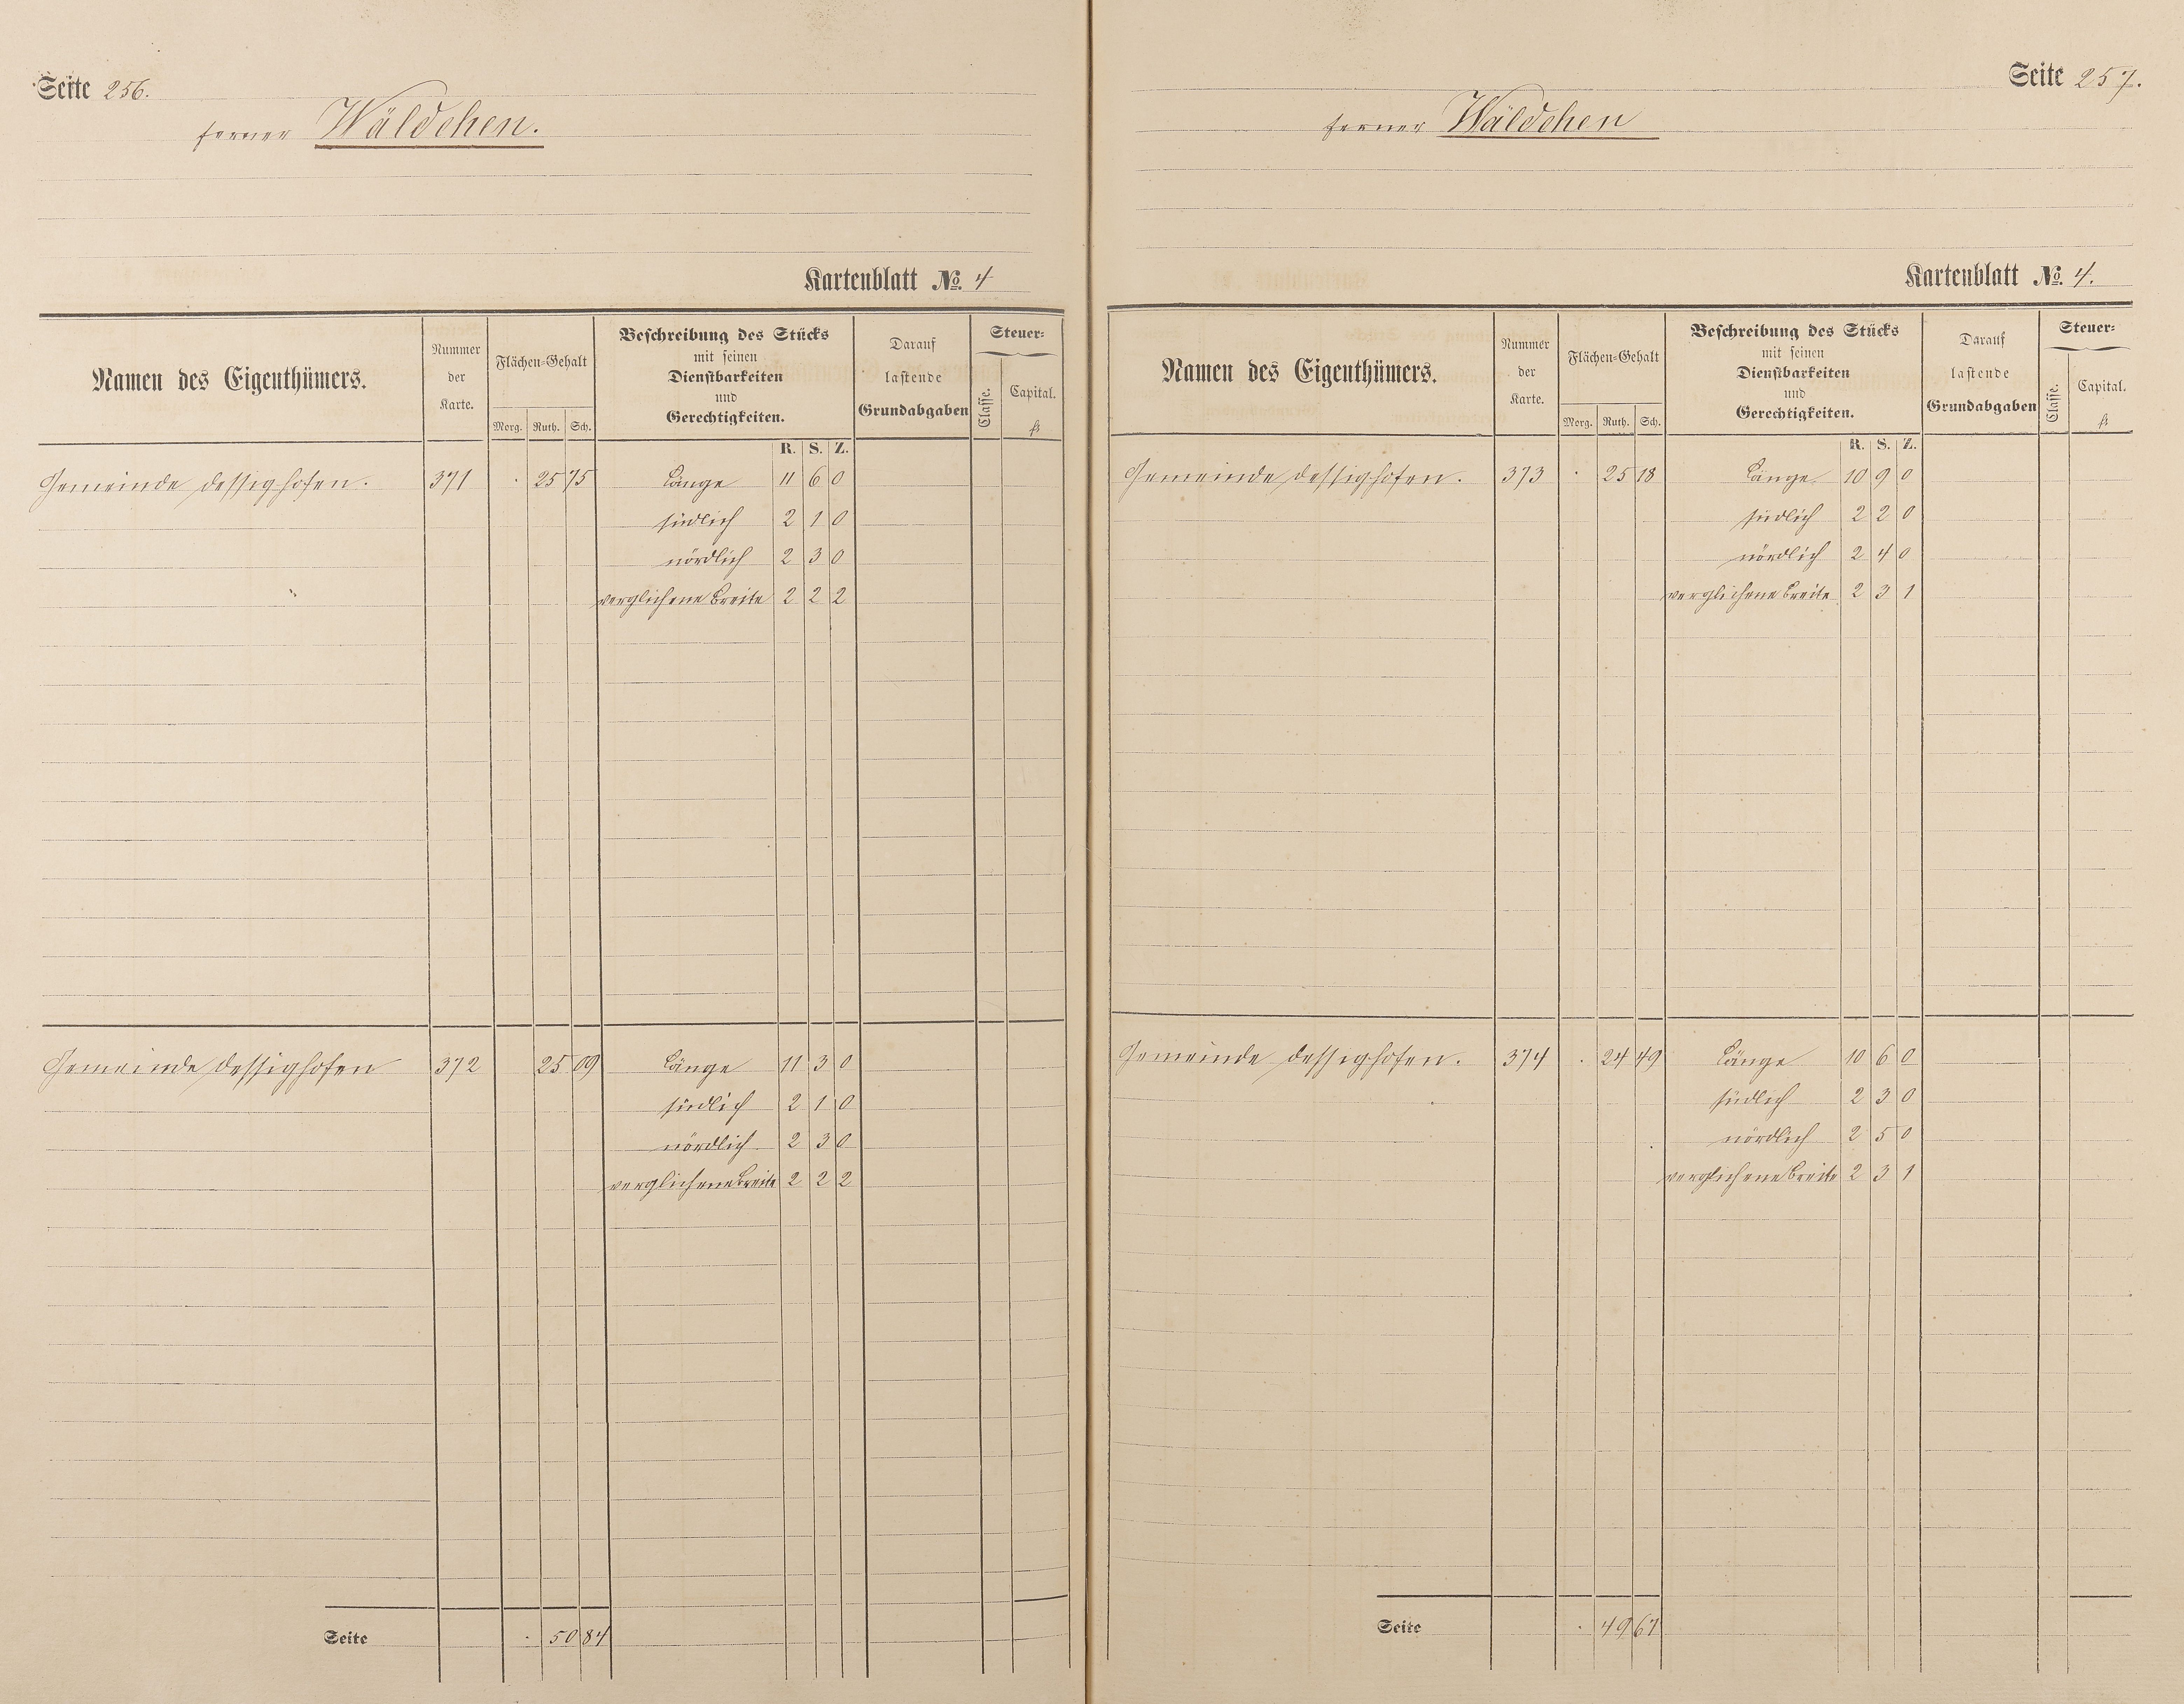 Seite 256.
ferner Wäldchen.
Kartenblatt No. 4
Namen des Eigenthümers.
Nummer
der
Karte.
Flächen-Gehalt
Morg. Ruth. Sch.
Beschreibung des Stücks
mit seinen
Dienstbarkeiten
und
Gerechtigkeiten.
Darauf
lastende
Grundabgaben
Steuer-
Classe.
Capital.
fl
R. S. Z.
Gemeinde Dessighofen. 371 . 25 75 Länge 11 6 0
südlich 2 1 0
nördlich 2 3 0
verglichene Breite 2 2 2
Gemeinde Dessighofen 372 25 09 Länge 11 3 0
südlich 2 1 0
nördlich 2 3 0
verglichene Breite 2 2 2
Seite . 50 84
Seite 257.
ferner Wäldchen
Kartenblatt No. 4.
Namen des Eigenthümers.
Nummer
der
Karte.
Flächen-Gehalt
Morg. Ruth. Sch.
Beschreibung des Stücks
mit seinen
Dienstbarkeiten
und
Gerechtigkeiten.
Darauf
lastende
Grundabgaben
Steuer-
Classe.
Capital.
fl
R. S. Z.
Gemeinde Dessighofen. 373 . 25 18 Länge 10 9 0
südlich 2 2 0
nördlich 2 4 0
verglichene Breite 2 3 1
Gemeinde Dessighofen. 374 . 24 49 Länge 10 6 0
südlich 2 3 0
nördlich 2 5 0
verglichene Breite 2 3 1
Seite . 49 67